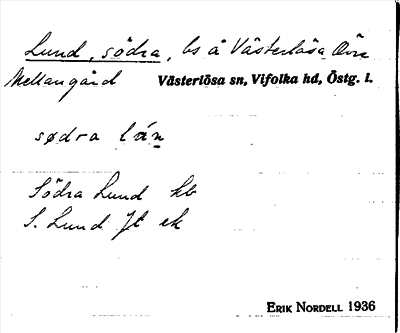 Lund, södra, bs å Västerlösa Övre
Mellangård Västerlösa sn, Vifolka hd, Östg. l.
sødra lán
Södra Lund kb
S. Lund Jt ek
ERIK NORDELL 1936